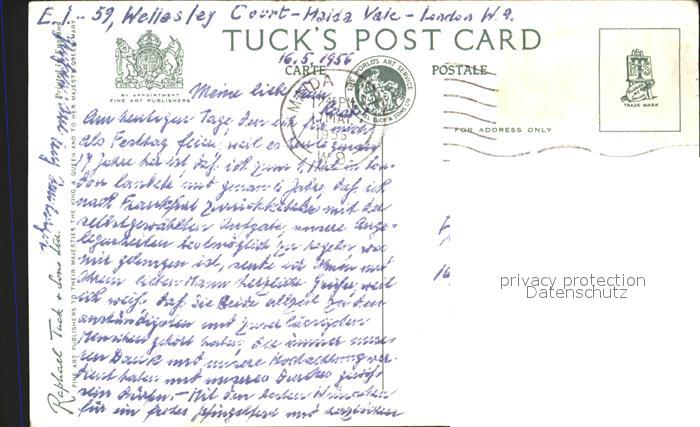 E.J. - 59, Wellesley Court - Maida Vale - London W.9.
TUCK'S POST CARD
16.5.1956
CARTE POSTALE
BY APPOINTMENT
FINE ART PUBLISHERS
THE WORLD'S ART SERVICE
RAPHAEL TUCK & SONS LTD
MAIDA
MAY
W.9
TRADE MARK
FOR ADDRESS ONLY
Meine liebe Frau
Am heutigen Tage, den ich für mich
als Festtag feiere, weil es heute genau
17 Jahre her ist, daß ich zum in Lon-
don landete und genau Jahre, daß ich
nach Frankfurt zurückkehrte mit der
selbstgewählten Aufgabe, unsere Ange-
legenheiten bestmöglich zu regeln, was
mir gelungen ist, sende ich Ihnen und
Ihrem lieben Mann herzliche Grüße, weil
ich weiß, daß Sie Beide allzeit zu den
anständigsten und zuverlässigsten
Menschen gehört haben, die immer unse-
ren Dank und unsere Hochachtung ver-
dient haben und unseres Dankes
sein dürfen. - Mit den besten Wünschen
für ein frohes Pfingstfest und herzlichen
Raphael Tuck & Sons Ltd.
FINE ART PUBLISHERS TO THEIR MAJESTIES THE KING & QUEEN AND TO HER MAJESTY QUEEN MARY
privacy protection
Datenschutz